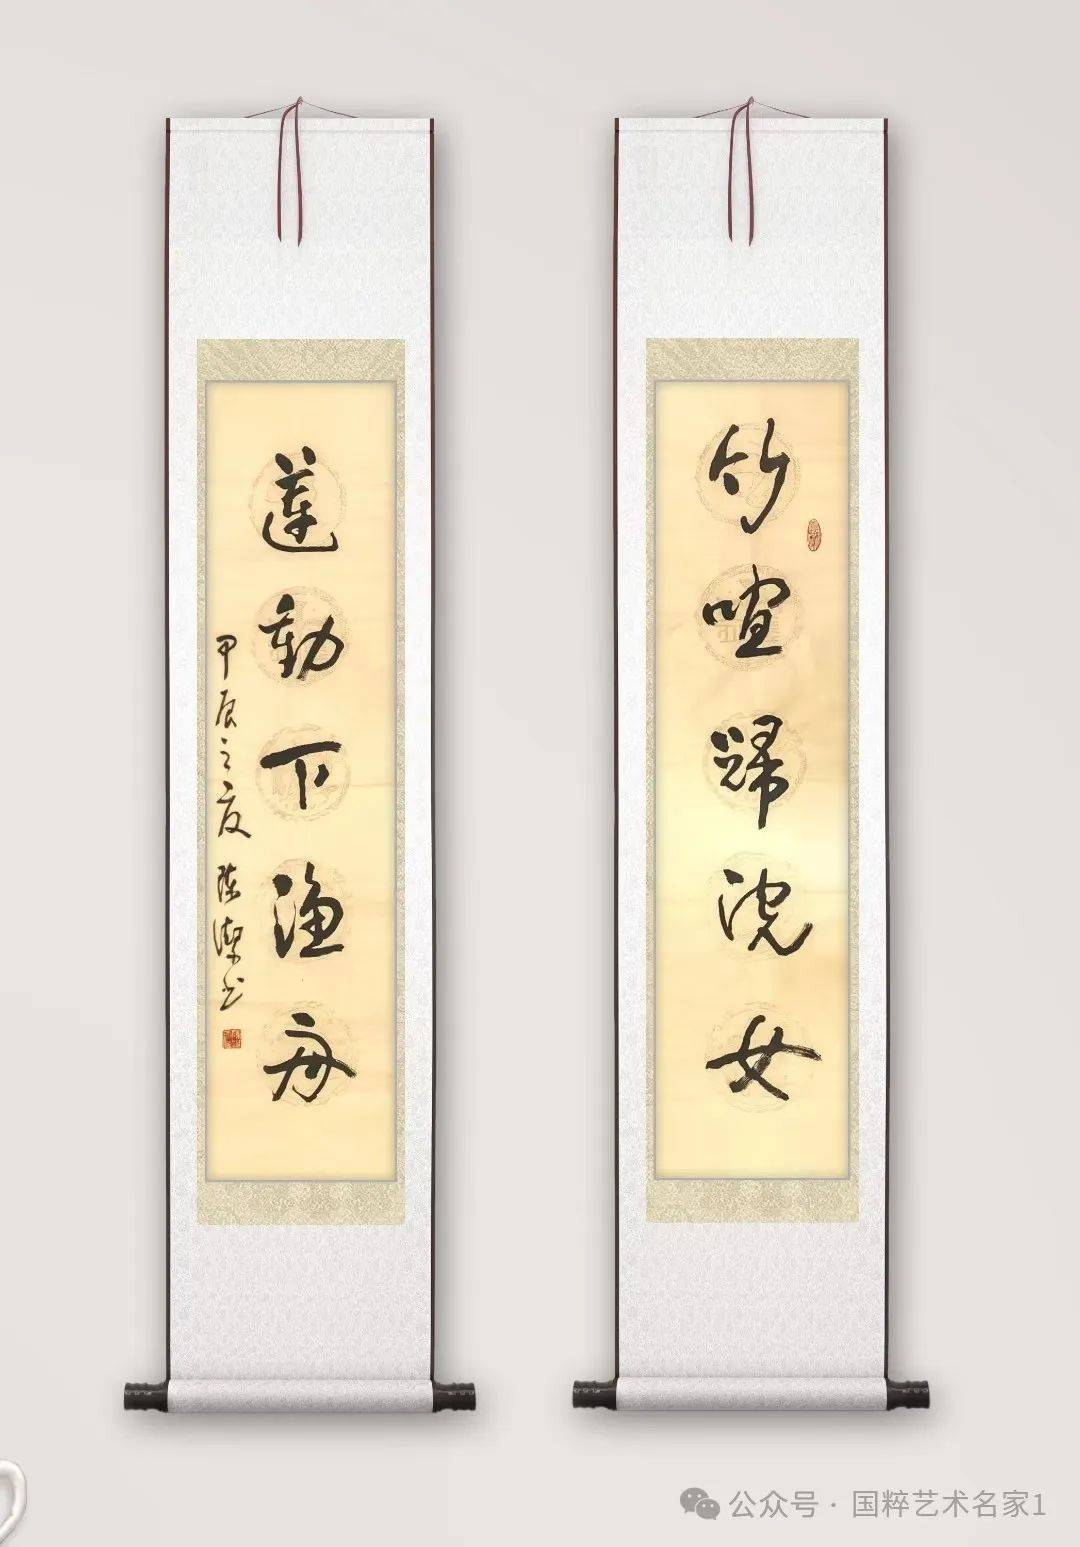 竹喧歸浣女
蓮動下漁舟
甲辰之夏 陈潔书
公众号 · 国粹艺术名家1